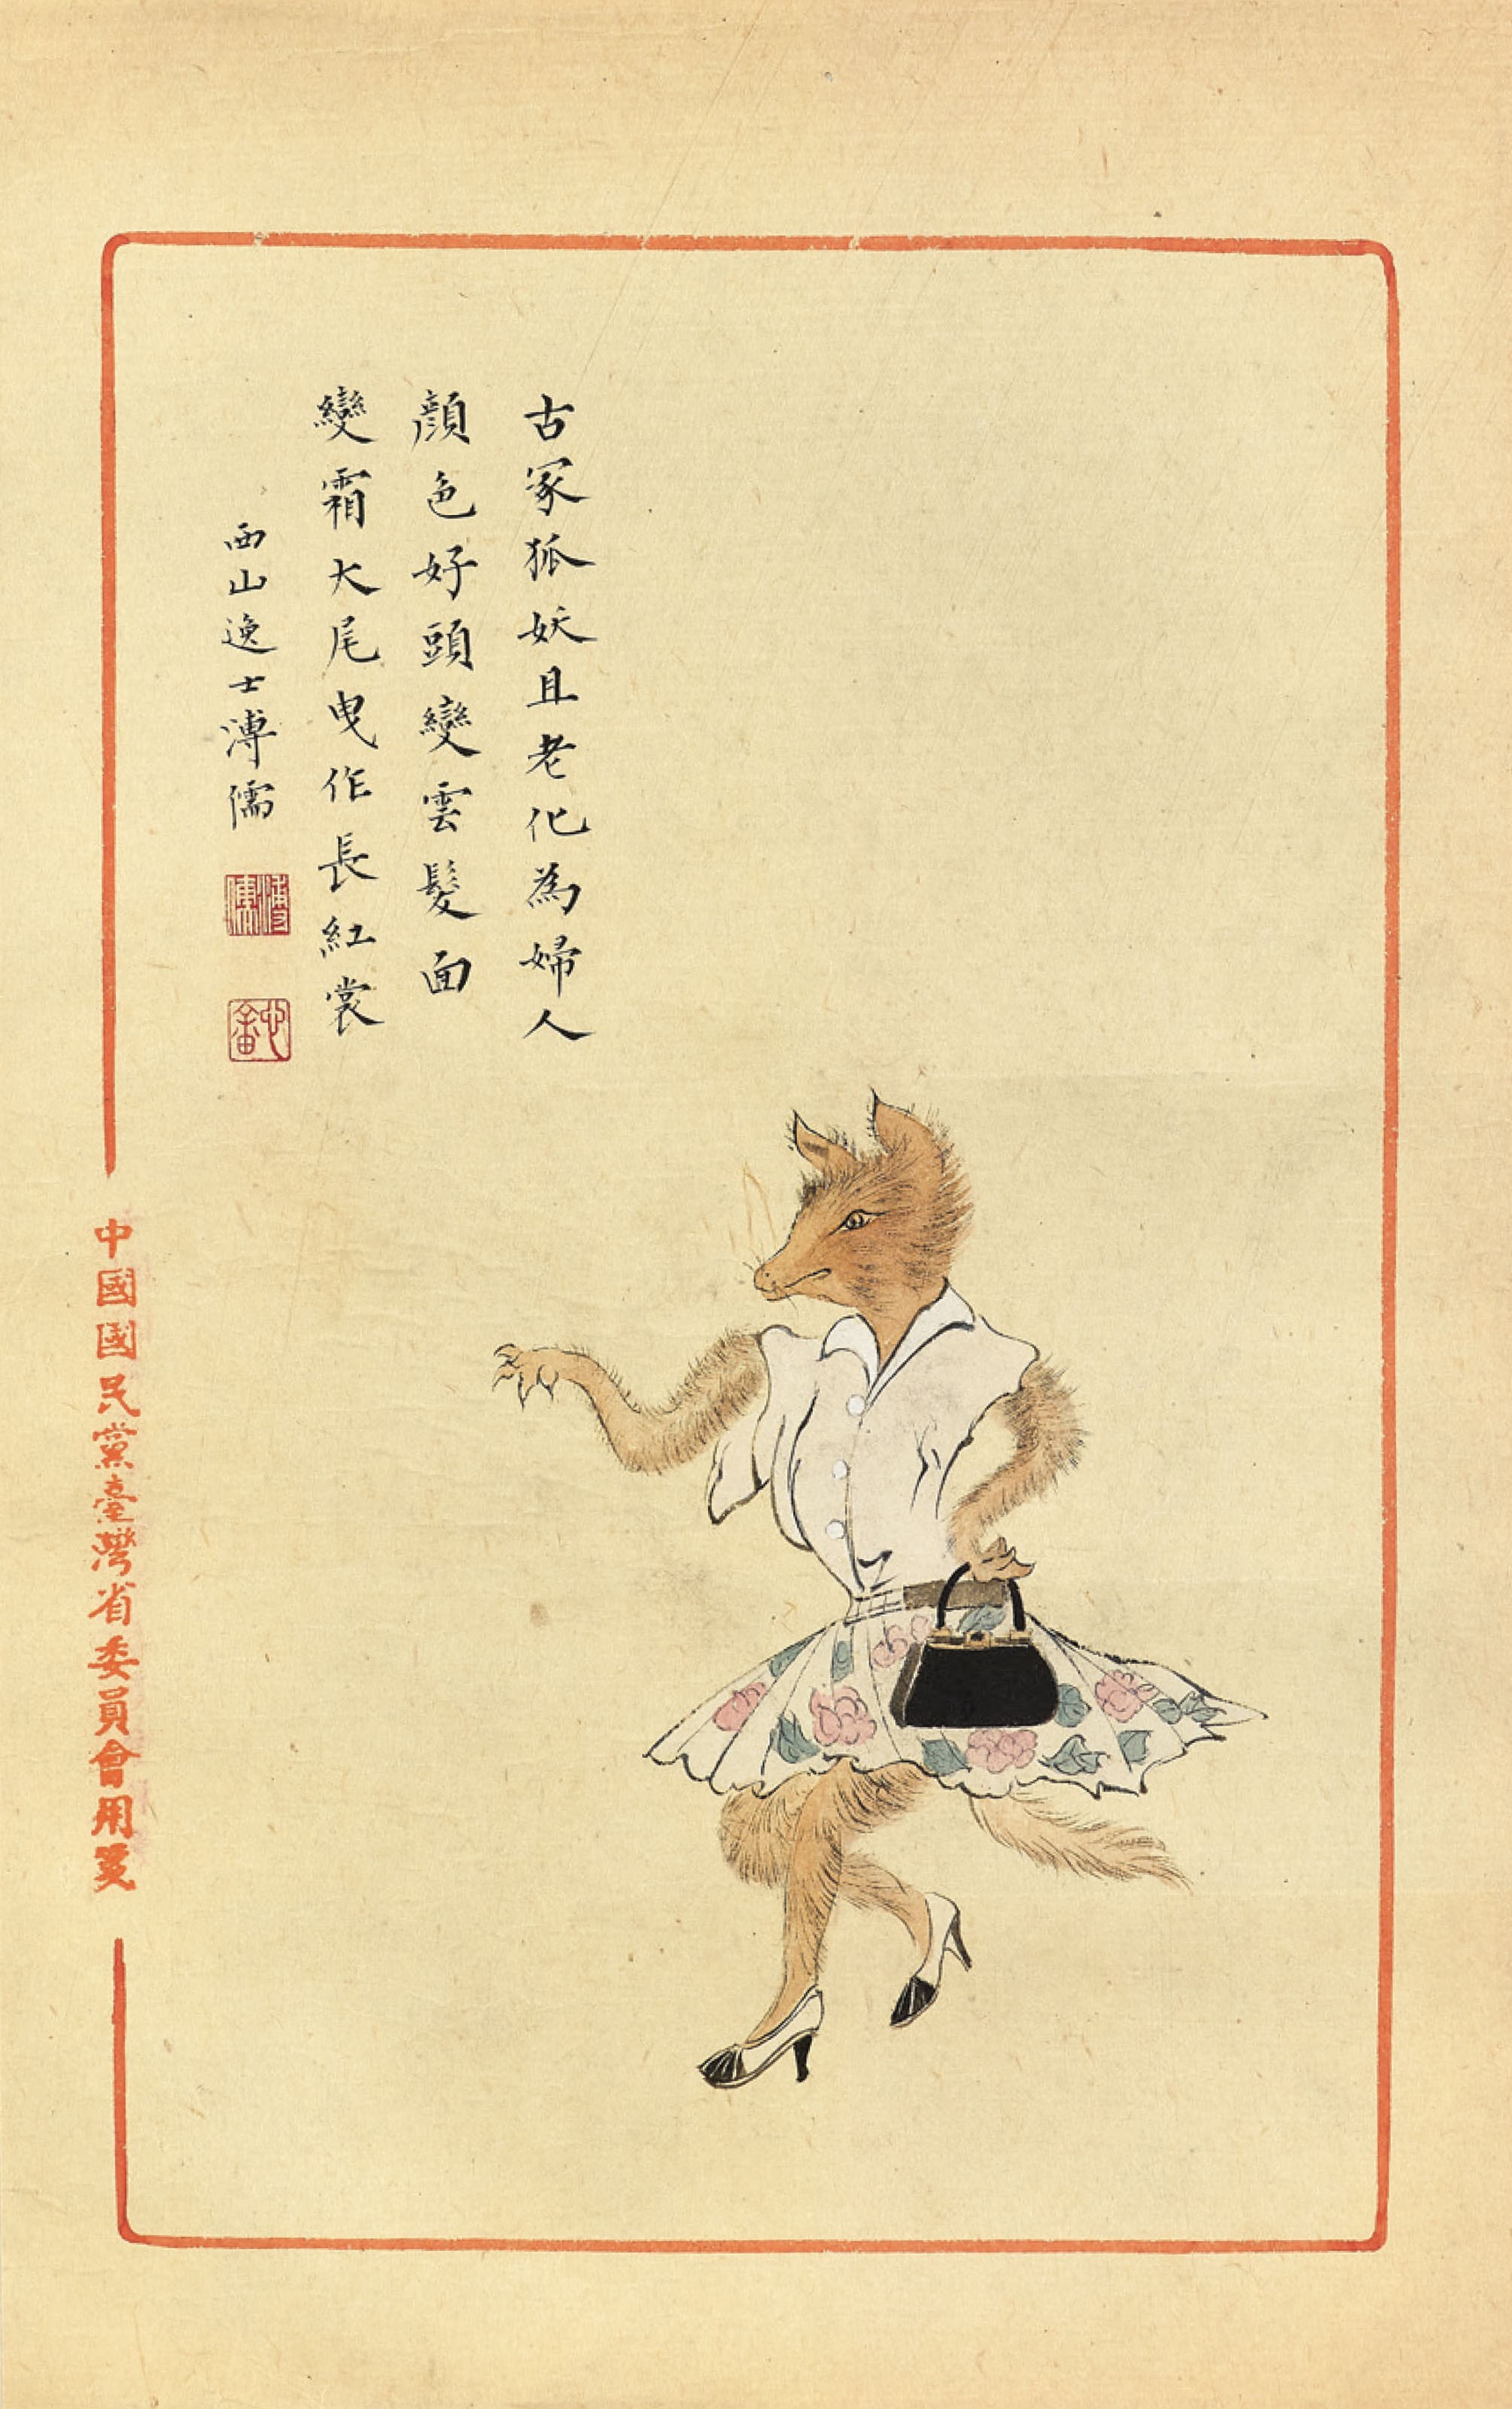 古冢狐妖且老化為婦人
顏色好頭變雲髮面
變霜大尾曳作長紅裳
西山逸士溥儒
中國國民黨臺灣省委員會用箋